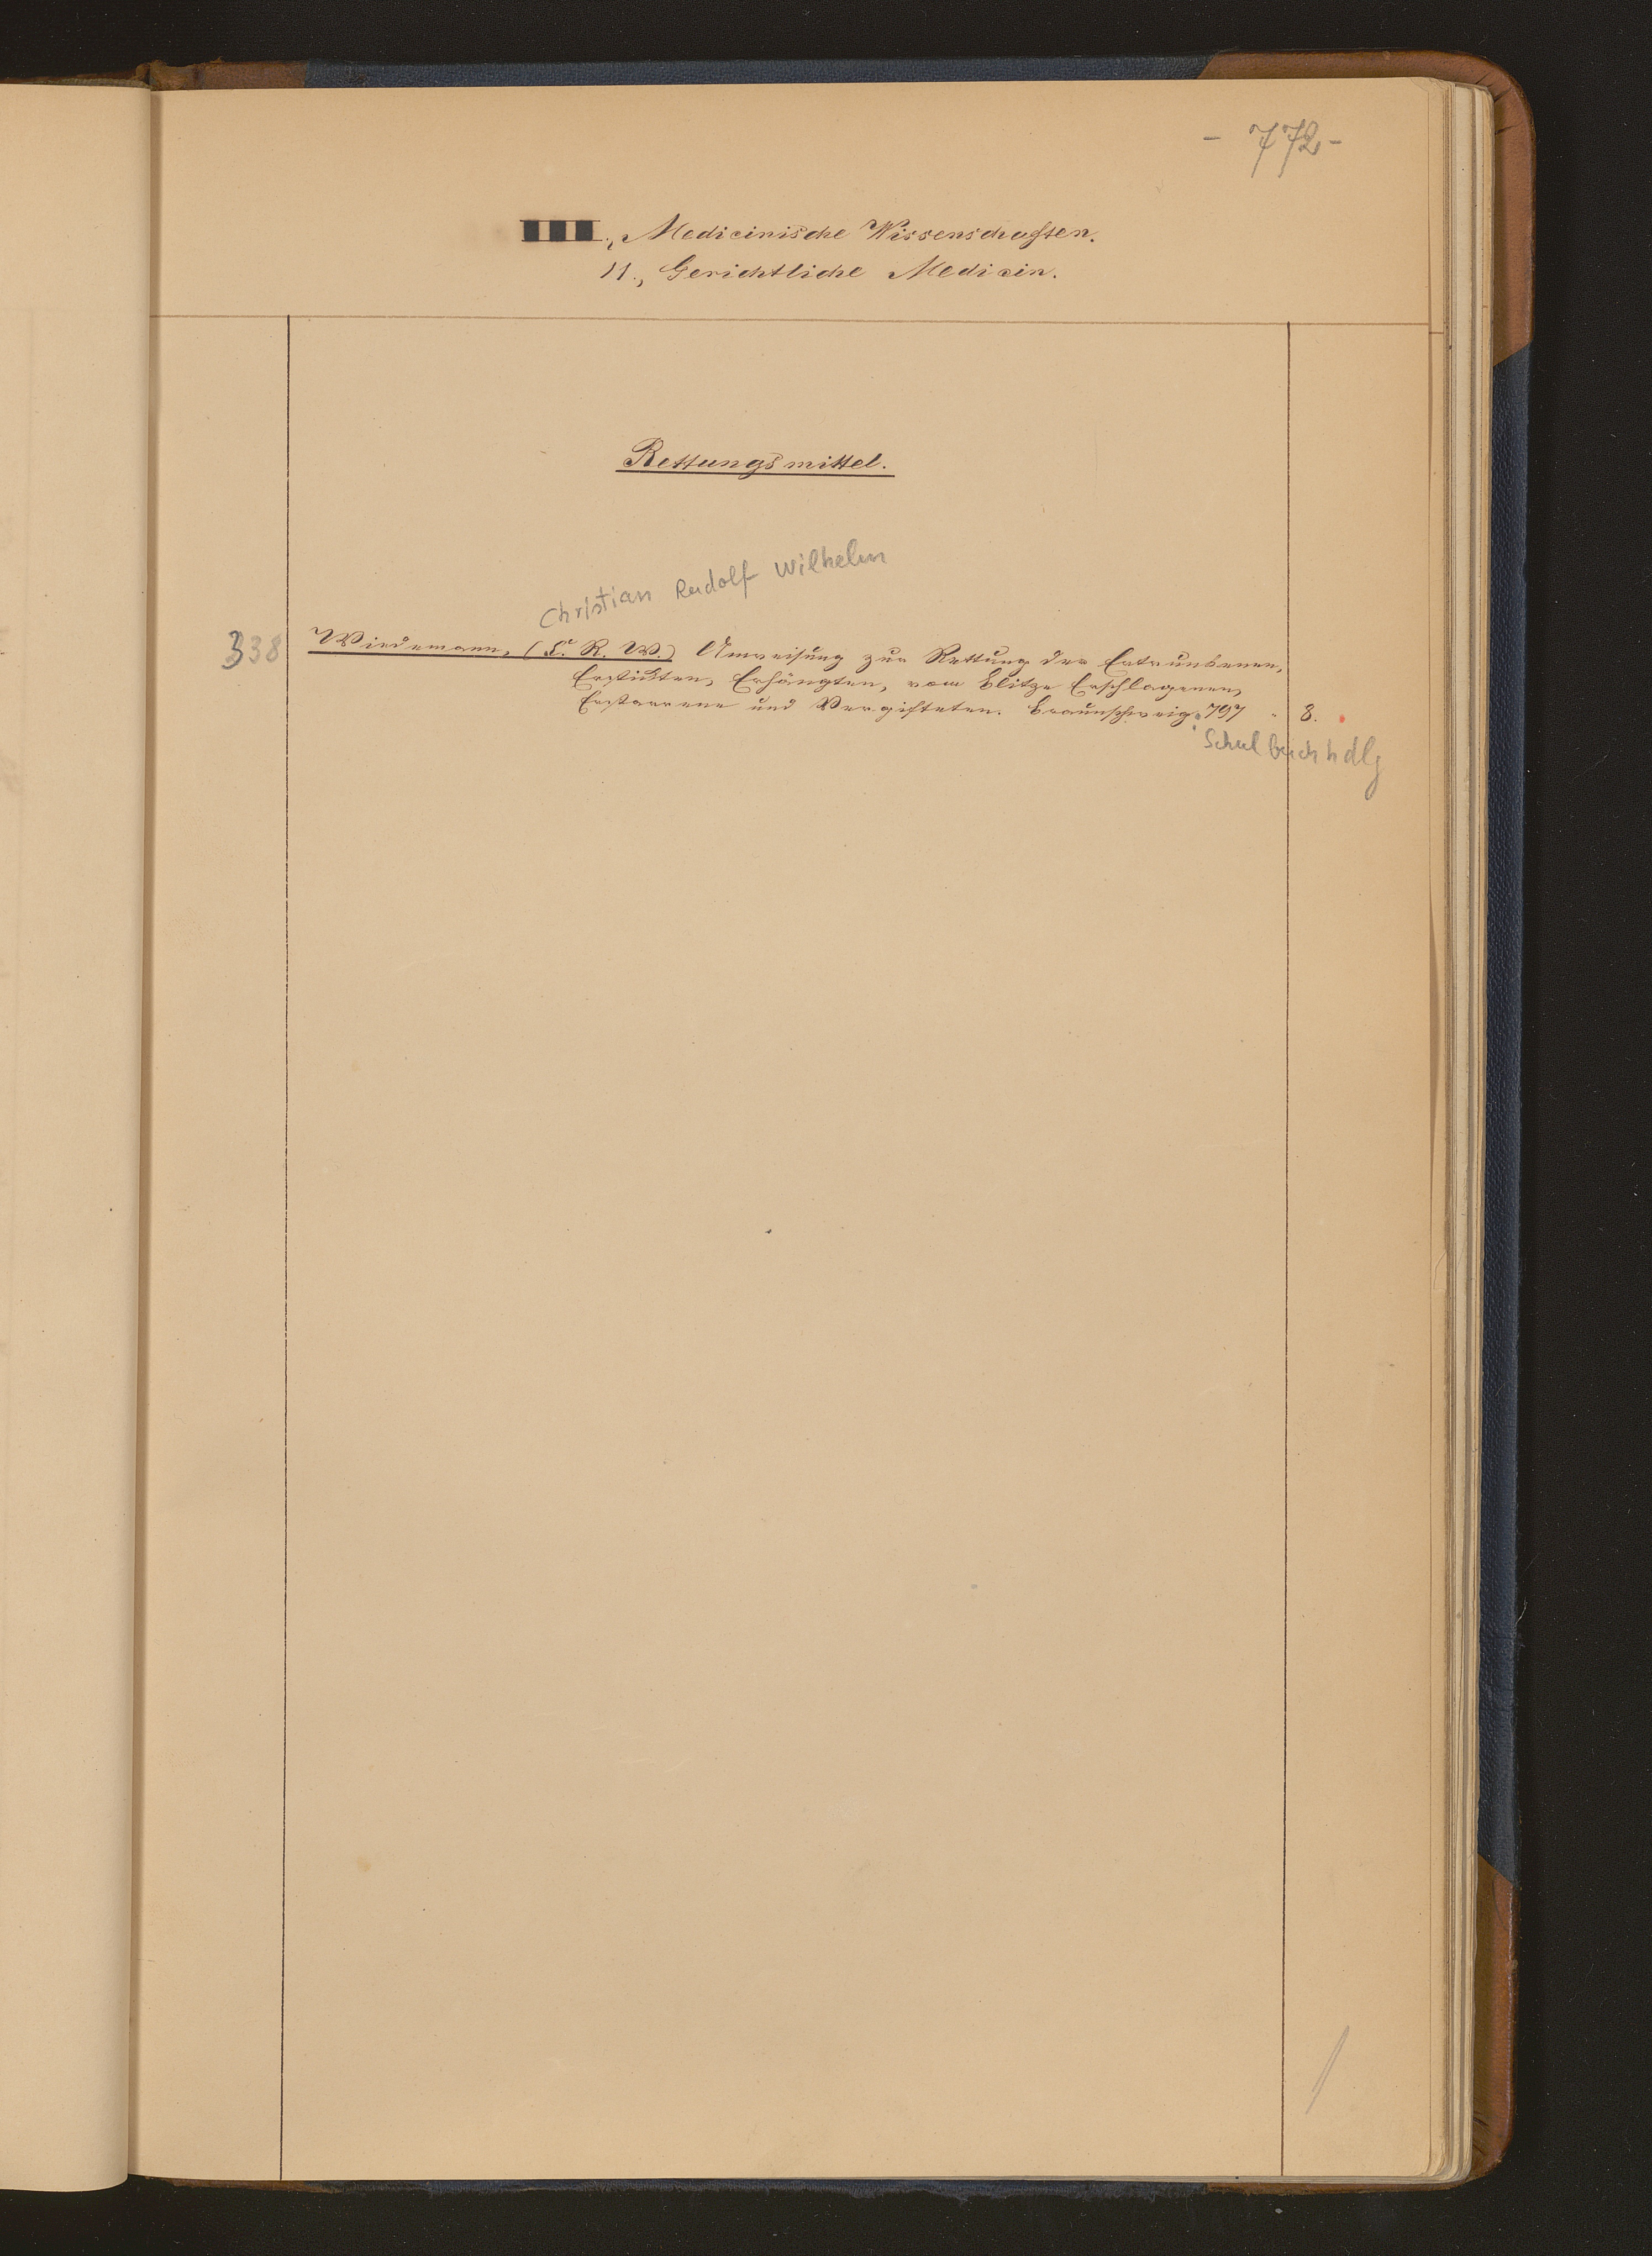 - 772 -
III., Medicinische Wissenschaften.
11., Gerichtliche Medicin.
Rettungsmittel.
Christian Rudolf Wilhelm
338 Wiedemann, (C. R. W.) Anweisung zur Rettung der Ertrunkenen,
Erstickten, Erhängten, vom Blitze Erschlagenen,
Erstarrene und Vergifteten. Braunschweig. 797 " 8.
Schulbuchhdlg